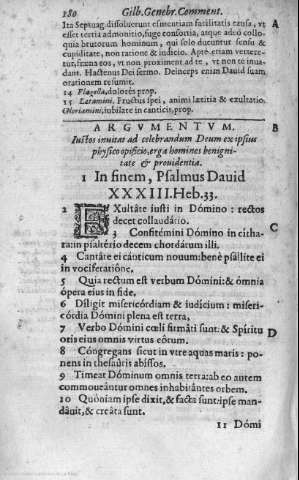 180 Gilb. Genebr. Comment.
Ita Septuag. dissoluerunt
esset tertia admonitio, fuge consortia, atque adeò collo-
quia brutorum hominum, qui solo ducuntur sensu &
cupiditate, non ratione & iudicio. Aptè etiam vertere-
tur, fræna eos, vt non proximent ad te, vt non te inua-
dant. Hactenus Dei sermo. Deinceps eniam Dauid suam
orationem resumit.
14 Flagella, dolores prop.
15 Lætamini. Fructus spei, animi lætitia & exultatio.
Gloriamini, iubilate in canticis, prop.
ARGVMENTVM. B
Iustos inuitat ad celebrandum Deum ex ipsius
physico opificio, erga homines benigni-
tate & prouidentia.
1 In finem, Psalmus Dauid
XXXIII. Heb. 33.
2 EXultáte iusti in Dómino: rectos
decet collaudátio. C
3 Confitémini Dómino in citha-
ra: in psaltério decem chordárum illi.
4 Cantáte ei cánticum nouum: benè psállite ei
in vociferatióne.
5 Quia rectum est verbum Dómini: & ómnia
ópera eius in fide.
6 Díligit misericórdiam & iudícium: miseri-
córdia Dómini plena est terra,
7 Verbo Dómini cœli firmáti sunt: & Spíritu D
oris eius omnis virtus eórum.
8 Cóngregans sicut in vtre aquas maris: po-
nens in thesáuris abíssos.
9 Tímeat Dóminum omnis terra: ab eo autem
commoueántur omnes inhabitántes orbem.
10 Quóniam ipse dixit, & facta sunt: ipse man-
dáuit, & creáta sunt.
11 Dómi